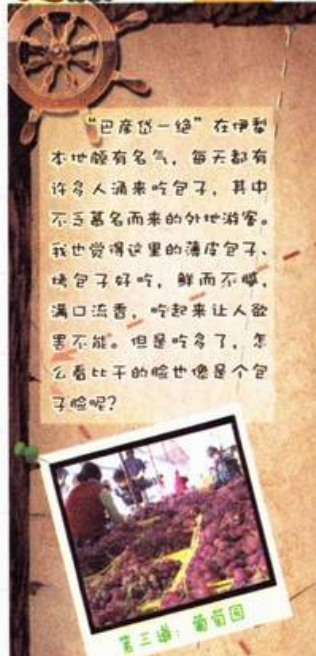 “巴彦岱一绝”在伊犁
本地颇有名气，每天都有
许多人涌来吃包子，其中
不乏慕名而来的外地游客。
我也觉得这里的薄皮包子、
烤包子好吃，鲜而不腻，
满口流香，吃起来让人欲
罢不能。但是吃多了，怎
么看比干的脸也像是个包
子脸呢？
第三道：葡萄园